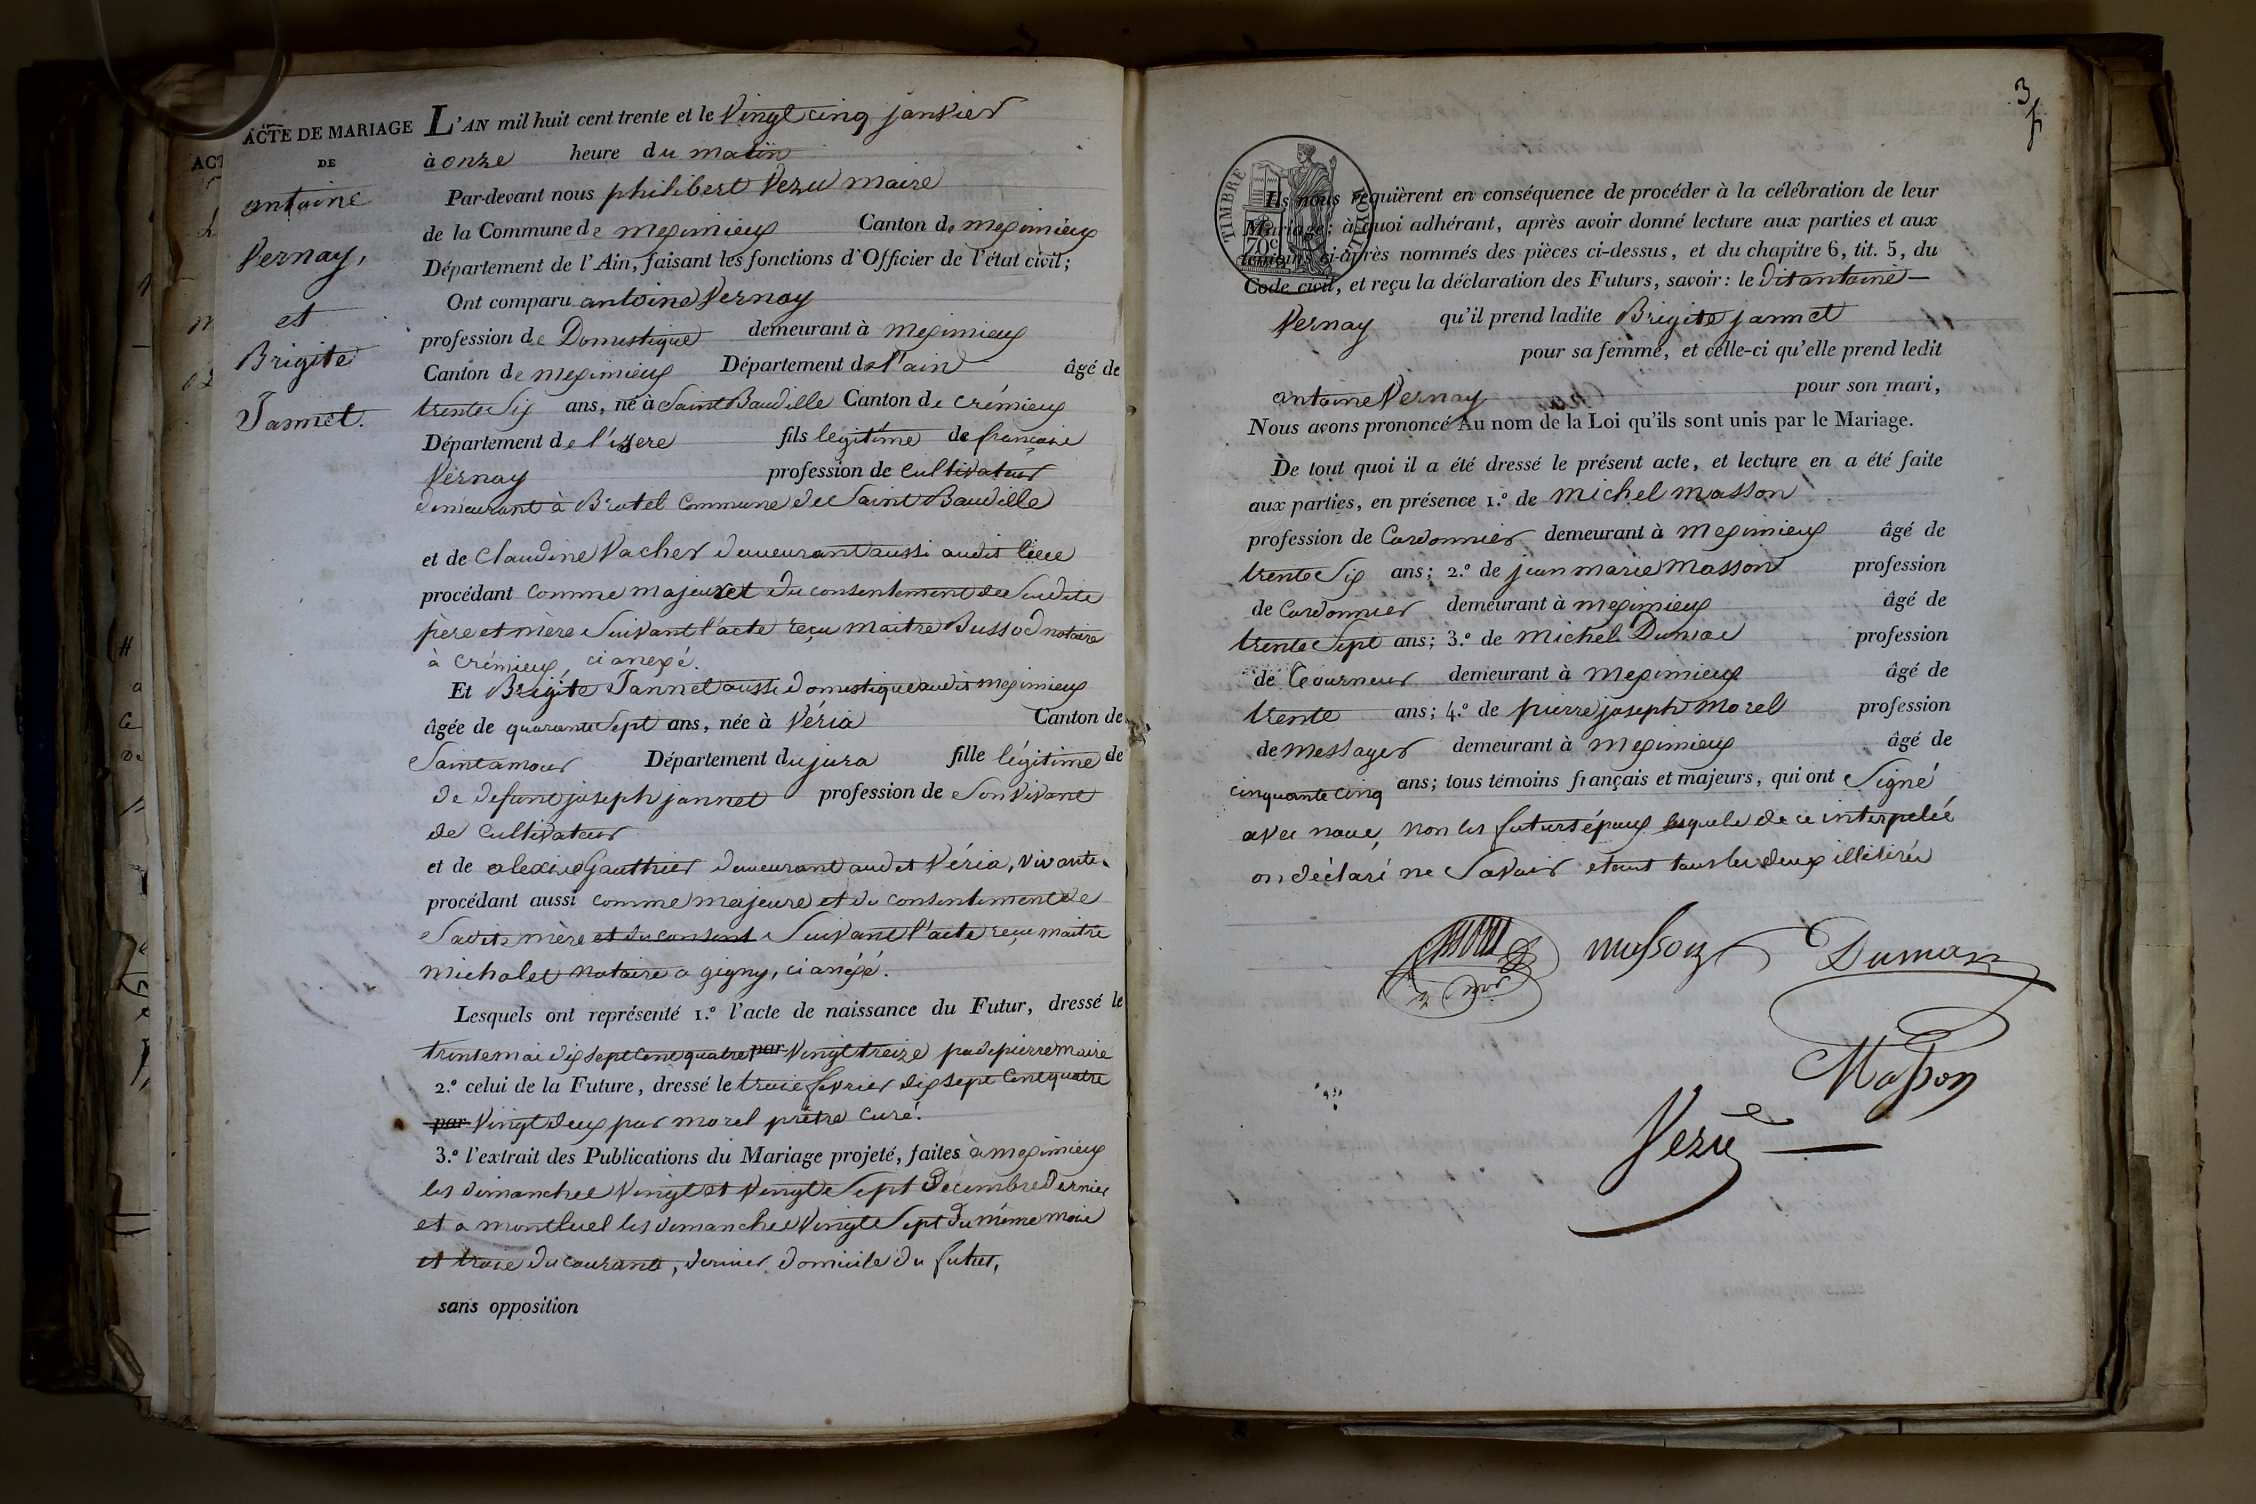 ACTE DE MARIAGE
DE
antoine
Vernay,
et
Brigite
Jannet.
L'AN mil huit cent trente et le Vingt cinq janvier
à onze heure du matin
Par-devant nous philibert Vezu maire
de la Commune de meximieux Canton de meximieux
Département de l'Ain, faisant les fonctions d'Officier de l'état civil;
Ont comparu antoine Vernay
profession de Domestique demeurant à meximieux
Canton de meximieux Département de l'ain âgé de
trente Six ans, né à Saint Baudille Canton de crémieux
Département de l'izere fils légitime de françois
Vernay profession de cultivateur
demeurant à Brotel Commune de Saint Baudille
et de Claudine Vacher demeurant aussi audit lieu
procédant comme majeur et du consentement de Sesdits
père et mère Suivant l'acte reçu maitre Bussod notaire
à crémieux, ci anexé.
Et Brigite Jannet aussi domestique audit meximieux
âgée de quarante Sept ans, née à Véria Canton de
Saint amour Département du jura fille légitime de
de defunt joseph jannet profession de Son vivant
de cultivateur
et de alexise Gauthier demeurant audit Véria, vivante
procédant aussi comme majeure et du consentement de
Sadite mère et du consent Suivant l'acte reçu maitre
michalet notaire a gigny, ci anéxé.
Lesquels ont représenté 1.º l'acte de naissance du Futur, dressé le
trente mai dix sept cent quatre par Vingt treize par depierre maire
2.º celui de la Future, dressé le trois fevrier dix sept cent quatre
par Vingt deux par morel prêtre curé.
3.º l'extrait des Publications du Mariage projeté, faites à meximieux
les dimanches Vingt et Vingt Sept Décembre dernier
et a montluel les dimanches Vingt Sept du même mois
et trois du courant, dernier domicile du futur,
sans opposition
3
TIMBRE
70c
Ils nous requièrent en conséquence de procéder à la célébration de leur
Mariage; à quoi adhérant, après avoir donné lecture aux parties et aux
témoins ci-après nommés des pièces ci-dessus, et du chapitre 6, tit. 5, du
Code civil, et reçu la déclaration des Futurs, savoir: le dit antoine
Vernay qu'il prend ladite Brigite jannet
pour sa femme, et celle-ci qu'elle prend ledit
antoine Vernay pour son mari,
Nous avons prononcé Au nom de la Loi qu'ils sont unis par le Mariage.
De tout quoi il a été dressé le présent acte, et lecture en a été faite
aux parties, en présence 1.º de michel masson
profession de Cordonnier demeurant à meximieux âgé de
trente Six ans; 2.º de jean marie masson profession
de Cordonnier demeurant à meximieux âgé de
trente Sept ans; 3.º de michel Dumas profession
de tourneur demeurant à meximieux âgé de
trente ans; 4.º de pierre joseph morel profession
de messager demeurant à meximieux âgé de
cinquante cinq ans; tous témoins français et majeurs, qui ont Signé
avec nous, non les futurs époux lesquels de ce interpelés
on déclaré ne Savoir etant tous les deux illitirés
masson Dumas
Masson
Vezu